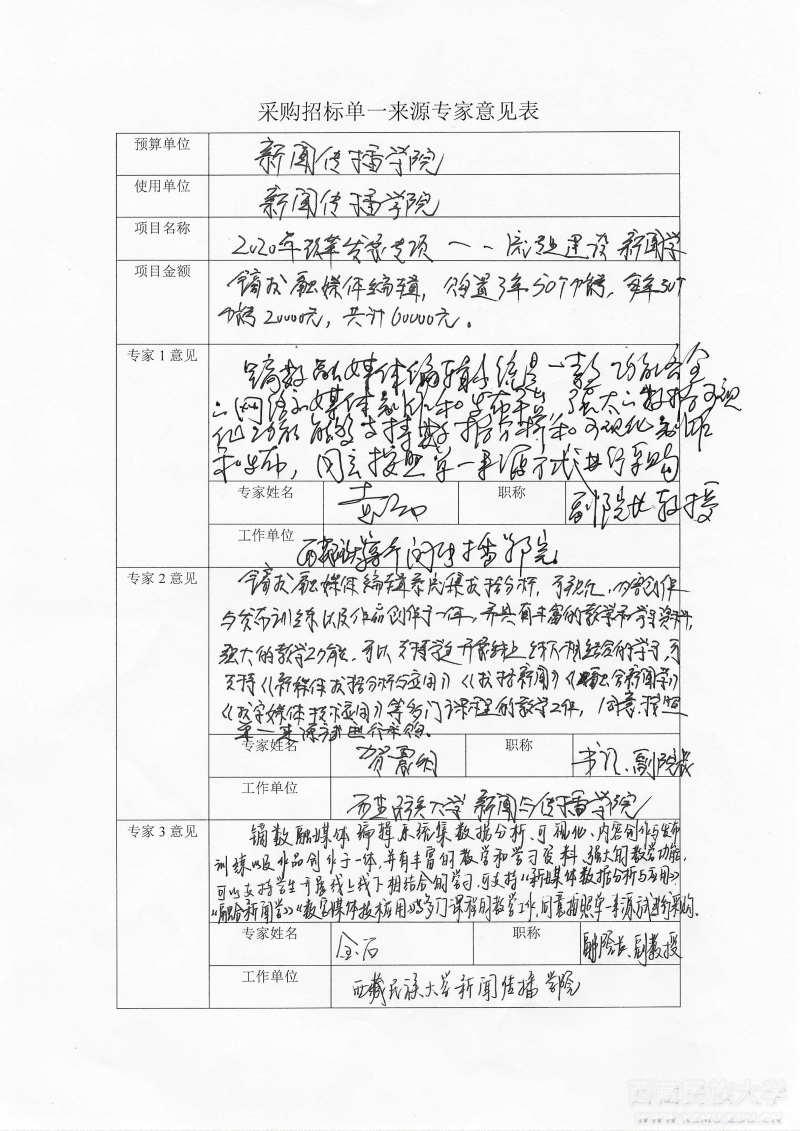 采购招标单一来源专家意见表
预算单位
新闻传播学院
使用单位
新闻传播学院
项目名称
2020年改革发展专项——一流专业建设 新闻学
项目金额
镝数融媒体编辑,购置3年50个帐号,每年50个
帐号20000元,共计60000元。
专家1意见
镝数融媒体编辑系统是一款功能齐全
的网络融媒体制作和发布平台 强大的数据可视
化功能 能够支持数据分析和可视化制作
和发布,同意按照单一来源方式进行采购
专家姓名
职称
副院长 教授
工作单位
西藏民族大学新闻传播学院
专家2意见
镝数融媒体编辑系统集数据分析,可视化,内容创作
与发布训练以及作品创作于一体,并具有丰富的教学和学习资料,
强大的教学功能,可以支持学生开展线上线下相结合的学习,可
支持《新媒体数据分析与应用》《数据新闻》《融合新闻学》
《数字媒体技术应用》等多门课程的教学工作,同意按照
单一来源方式进行采购。
专家姓名
职称
书记、副院长
工作单位
西藏民族大学新闻与传播学院
专家3意见
镝数融媒体编辑系统集数据分析、可视化、内容创作与发布
训练以及作品创作于一体,并有丰富的教学和学习资料、强大的教学功能,
可以支持学生开展线上线下相结合的学习,可支持《新媒体数据分析与应用》
《融合新闻学》《数字媒体技术应用》等多门课程的教学工作,同意按照单一来源方式进行采购。
专家姓名
金石
职称
副院长、副教授
工作单位
西藏民族大学新闻传播学院
西藏民族大学
WWW.XZMU.EDU.CN